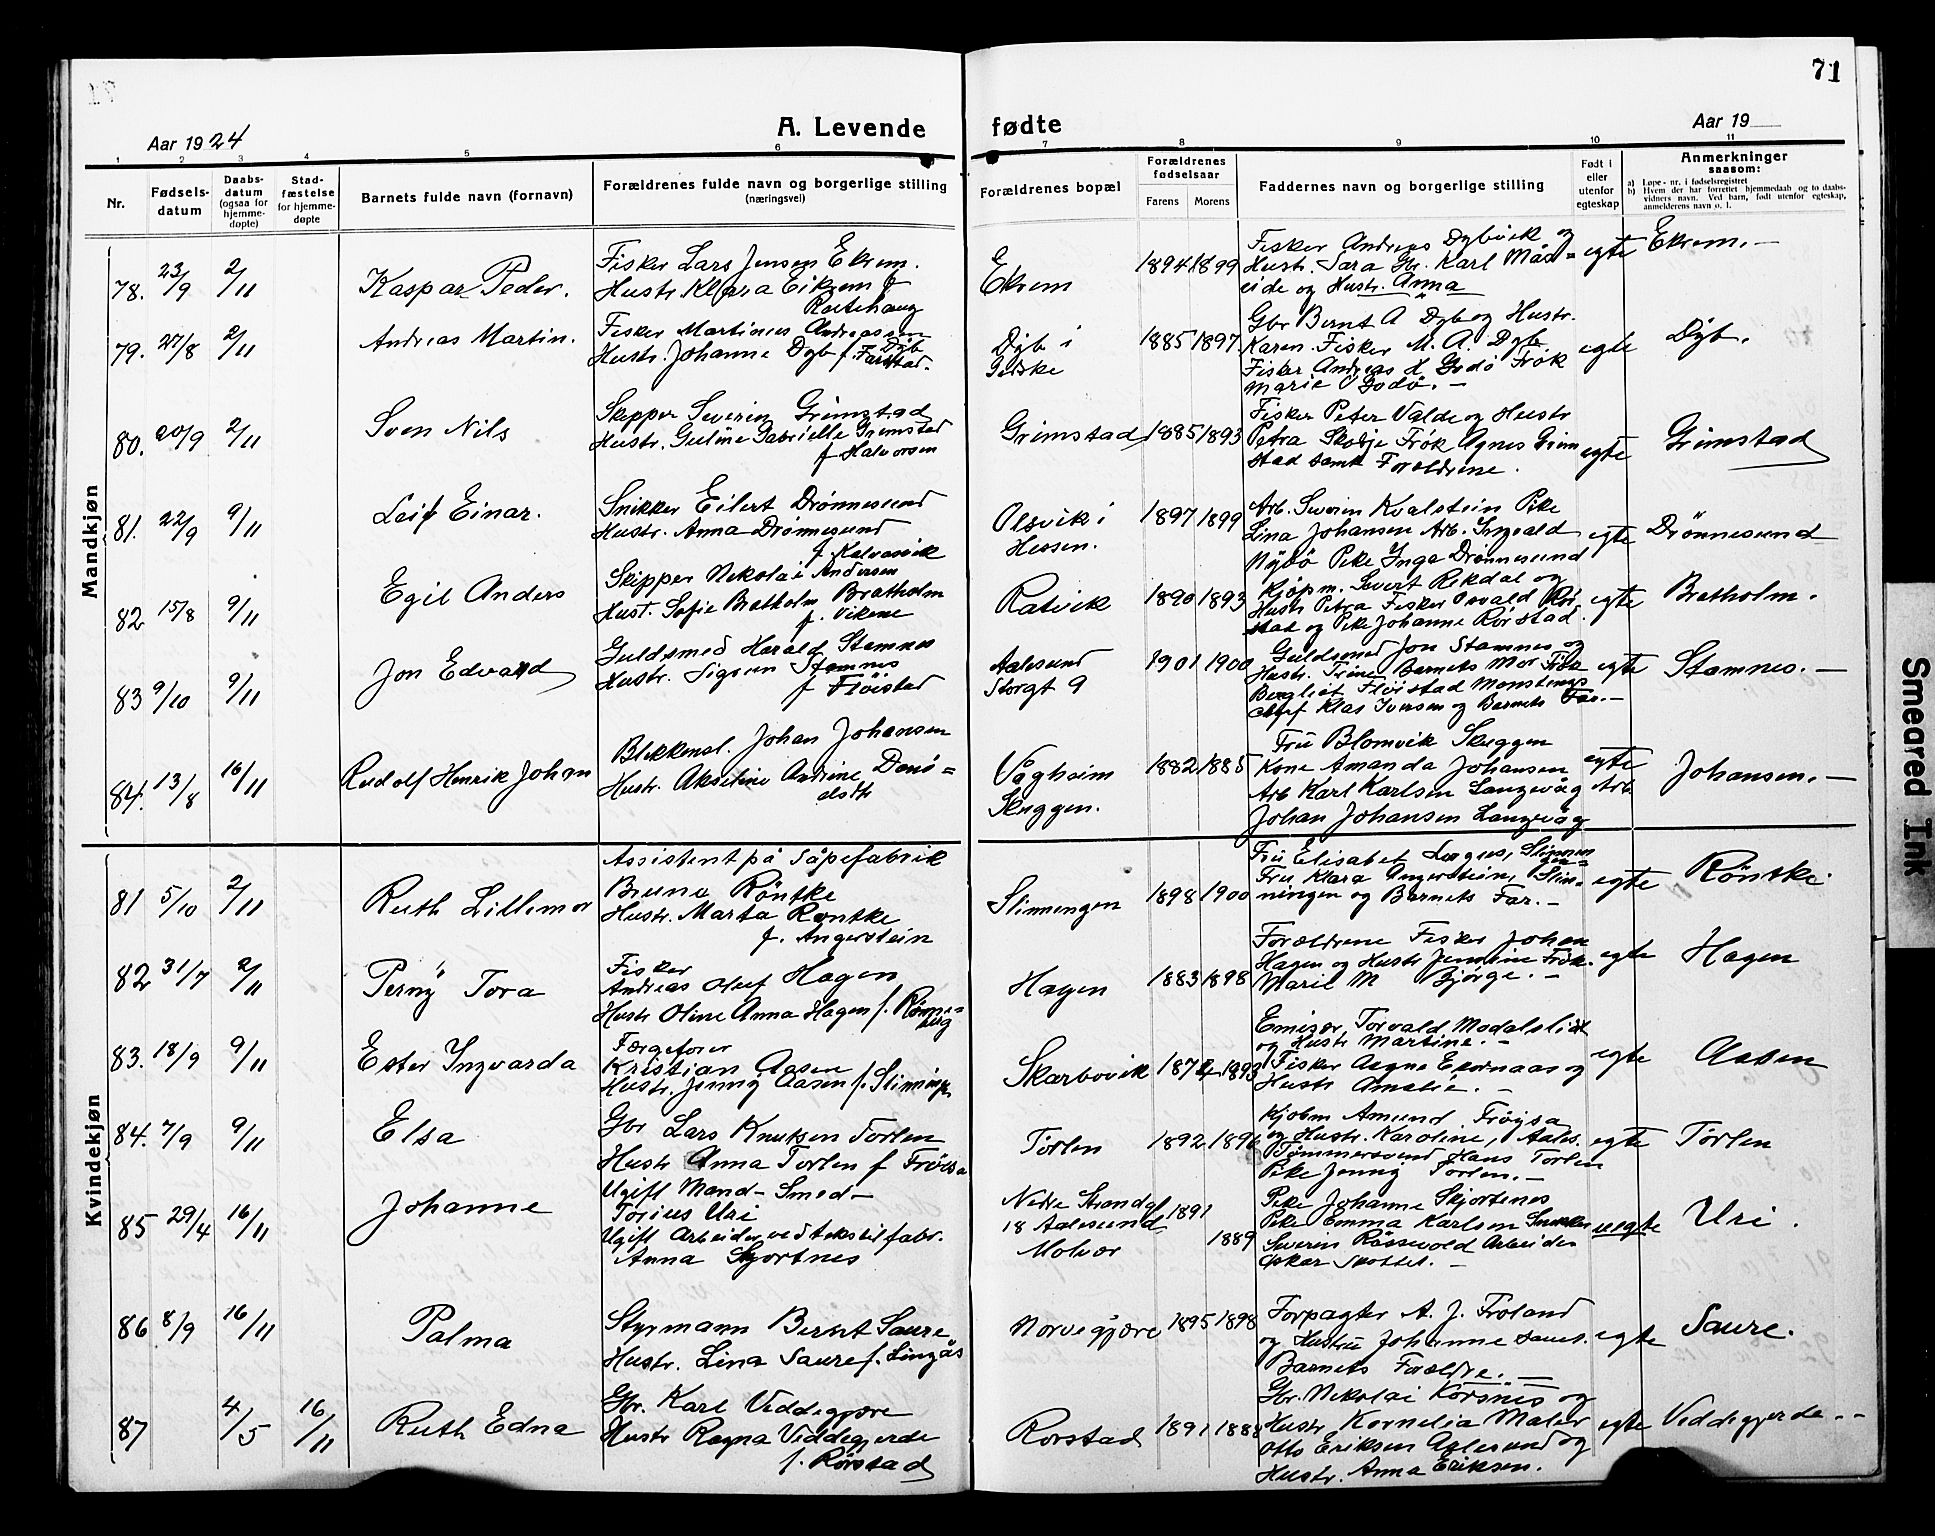 71
Aar 1924
A. Levende fødte
Aar 19
1 2 3 4 5 6 7 8 9 10 11
Nr.
Fødsels-
datum
Daabs-
datum
(ogsaa for
hjemme-
døpte)
Stad-
fæstelse
for hjemme-
døpte
Barnets fulde navn (fornavn)
Forældrenes fulde navn og borgerlige stilling
(næringsvei)
Forældrenes bopæl
Forældrenes
fødselsaar
Farens Morens
Faddernes navn og borgerlige stilling
Født i
eller
utenfor
egteskap
Anmerkninger
saasom:
a) Løpe-nr. i fødselsregistret
b) Hvem der har forrettet hjemmedaab og to daabs-
vidners navn. Ved barn, født utenfor egteskap,
anmelderens navn o. l.
Mandkjøn
78. 23/9 2/11
Kaspar Peder.
Fisker Lars Jensen Ekrem.
Hustr. Klara Eikrem f
Roitehaug
Ekrem
1894 1899
Fisker Andreas Dybvik og
Hustr. Sara Gbr. Karl Mås=
eide og Hustr. Anna
egte
Ekrem.-
79. 27/8 2/11
Andreas Martin.
Fisker Martinus Andreassen
Dyb
Hustr. Johanne Dyb f. Farstad.
Dyb i
Giske
1885 1897
Gbr Bernt A Dyb og Hustr.
Karen. Fisker M. A. Dyb
Fisker Andreas d Godö Frøk
Marie O Godö.-
egte
Dyb.
80. 20/9 2/11
Sven Nils
Skipper Severin Grimstad
Hustr. Guline Gabrielle Grimstad
f Halvorsen
Grimstad
1885 1893
Fisker Peter Valde og Hustr
Petra Skodje Frøk Agnes Grim
stad samt Forældrene.
egte
Grimstad
81. 22/9 9/11
Leif Einar.
Snikker Eilert Drönnesund
Hustr. Anna Drönnesund
f. Kalvasvik
Olsvik i
Hessen.
1897 1899
Arb. Severin Kvalstein Pike
Lina Johansen Arb. Ingvald
Nybö Pike Inga Drönnesund
egte
Drönnesund
82 15/8 9/11
Egil Anders
Skipper Nikolai Andersen
Bratholm
Hust. Sofie Bratholm
f. Vikene
Ratvik
1890 1893
Kjøpm. Severt Rekdal og
Hustr Petra Fisker Osvald Rör
stad og Pike Johanne Rörstad.
egte
Bratholm.
83 9/10 9/11
Jon Edvard
Guldsmed Harald Stamnes
Hustr. Sigrun Stamnes
f Flöistad
Aalesund
Storgt 9
1901 1900
Guldsmed Jon Stamnes og
Hustr. Trine Barnets Mor Frøk
Bergliot Flöistad Mønstrings
chef Klas Iversen og Barnets Far.-
egte
Stamnes.-
84. 13/8 16/11
Rudolf Henrik Johan
Blekkensl. Johan Johansen
Hustr. Akseline Andrine Donö=
Vågheim
Skuggen.
1882 1885
Fru Blomvik Skuggen
Kone Amanda Johansen
Arb Karl Karlsen Langevåg Arb
Johan Johansen Langevåg
egte
Johansen.-
Kvindekjøn
81 5/10 2/11
Ruth Lillemor
Assistent på Såpefabrik
Bruno Röntke
Hustr. Marta Röntke
f. Angerstein
Slinningen
1898 1900
Fru Elisabet
Fru Klara Angerstein, Slin=
ningen og Barnets Far.-
egte
Röntke
82 31/7 2/11
Perny Tora
Fisker
Andreas Oluf Hagen
Hustr Oline Anna Hagen f. Rönne=
berg
Hagen
1883 1898
Forældrene Fisker Johan
Hagen og Hustr Jensine Frøk.
Marie M Bjørge.-
egte
Hagen
83. 18/9 9/11
Ester Ingvarda
Færgefører
Kristian Aasen
Hustr. Jenny Aasen f. Slinninge
Skarbövik
1874 1893
Emisær Torvald Modalsli
og Hustr Martine.-
Fisker Aagne Ekornaas og
Hustr Amalie.-
egte
Aasen
84. 7/9 9/11
Elsa
Gbr Lars Knutsen Torlen
Hustr Anna Torlen f Fröisa
Törlen
1892 1896
Kjøbm Amund Fröysa
og Hustr. Karoline, Aales.
Tømmersvend Hans Torlen
Pike Jenny Torlen.-
egte
Törlen
85 29/4 16/11
Johanne
Ugift Mand- Smed-
Torius Uri
Ugift Arbeider ved tekstilfabr.
Anna Skjortnes
Nedre Strandgt
18 Aalesund
Molvær
1891
1889
Pike Johanne Skjortenes
Pike Emma Karlsen Snikker
Severin Røssevold Arbeider
Oskar Skottet.-
uegte
Uri.
86 8/9 16/11
Palma
Styrmann Bernt Saure
Hustr. Lina Saure f. Lingås
Norvegjære
1895 1898
Forpagter A. J. Froland
og Hustru Johanne samt.
Barnets Forældre.-
egte
Saure.
87 4/5 16/11
Ruth Edna
Gbr. Karl Veddegjære
Hustr Ragna Veddegjerde
f. Rörstad
Rorstad
1891 1888
Gbr. Nikolai Korsnes og
Hustr Kornelia Maler
Otto Eriksen Aalesund og
Hustr. Anna Eriksen.
egte
Veddegjerde.-
Smeared Ink